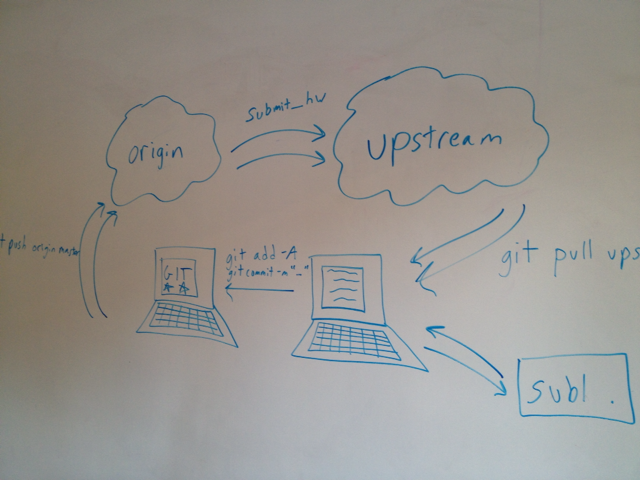 submit_hw
origin
upstream
t push origin master
git add -A
git commit -m "_"
GIT
git pull ups
subl .